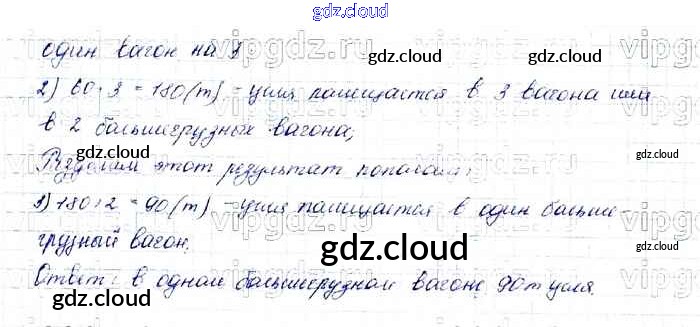 gdz.cloud
один вагон на 3
gdz.cloud
2) 60·3 = 180 (т) – угля помещается в 3 вагона или
в 2 большегрузных вагона;
gdz.cloud
Разделим этот результат пополам:
3) 180:2 = 90 (т) – угля помещается в один больше-
грузный вагон.
gdz.cloud
Ответ: в одном большегрузном вагоне 90 т угля.
gdz.cloud
gdz.cloud